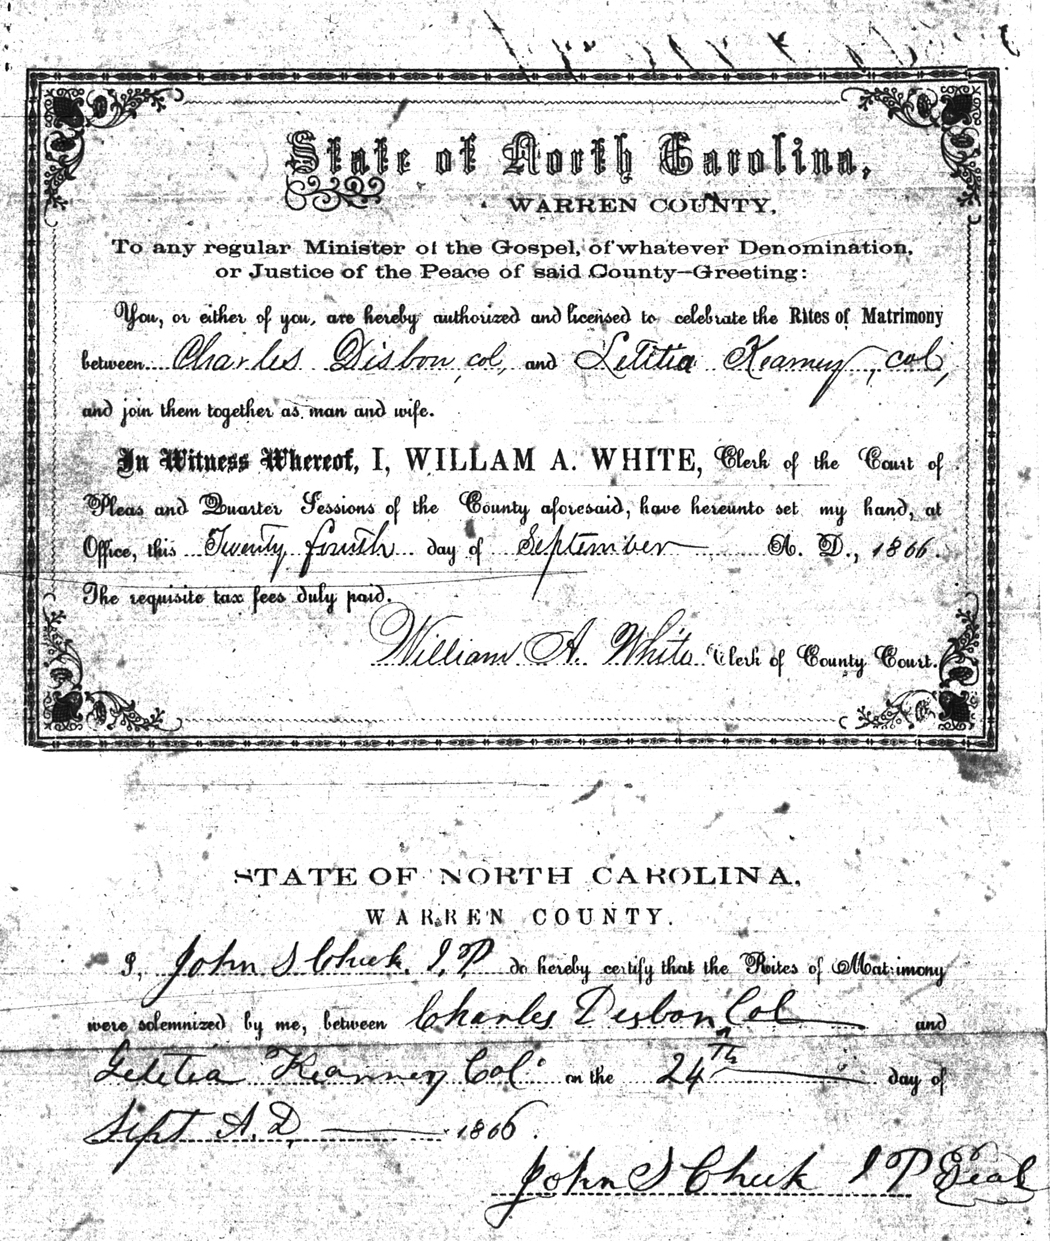 State of North Carolina,
WARREN COUNTY,
To any regular Minister of the Gospel, of whatever Denomination,
or Justice of the Peace of said County—Greeting:
You, or either of you, are hereby authorized and licensed to celebrate the Rites of Matrimony
between Charles Disbon, col, and Letitia Kearney, col,
and join them together as man and wife.
In Witness Whereof, I, WILLAM A. WHITE, Clerk of the Court of
Pleas and Quarter Sessions of the County aforesaid, have hereunto set my hand, at
Office, this Twenty fourth day of September A. D., 1866.
The requisite tax fees duly paid.
William A. White Clerk of County Court.
STATE OF NORTH CAROLINA,
WARREN COUNTY.
I, John S Cheek. J. P do hereby certify that the Rites of Matrimony
were solemnized by me, between Charles Disbon Col and
Letetia Kearney Col on the 24th day of
Sept A. D. 1866.
John S Cheek J P Seal